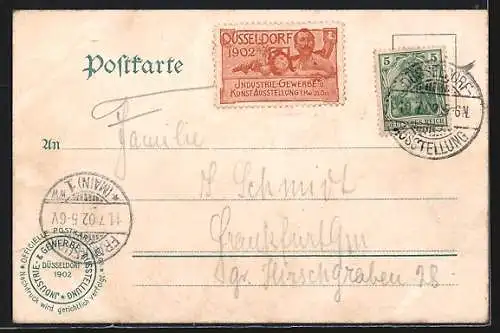 DÜSSELDORF
1902
INDUSTRIE-GEWERBE- U.
KUNST AUSSTELLUNG
5 5
DEUTSCHES REICH
DÜSSELDORF
AUSSTELLUNG
Postkarte
Familie
An
J Schmidt
Frankfurt a/m
Gr. Hirschgraben 28.
(MAIN) 1
11.7.02.5-6V
OFFICIELLE POSTKARTE
INDUSTRIE- & GEWERBE-AUSSTELLUNG
DÜSSELDORF
1902
Nachdruck wird gerichtlich verfolgt